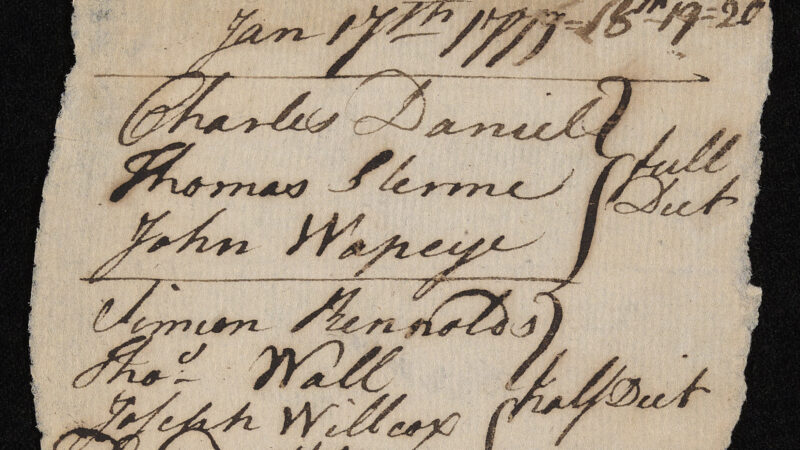 Jan 17th 1777=18th=19=20
Charles Daniel
Thomas Sterne
full
Diet
John Wapeye
Simion Rennolds
Thos Wall
half Diet
Joseph Willcox